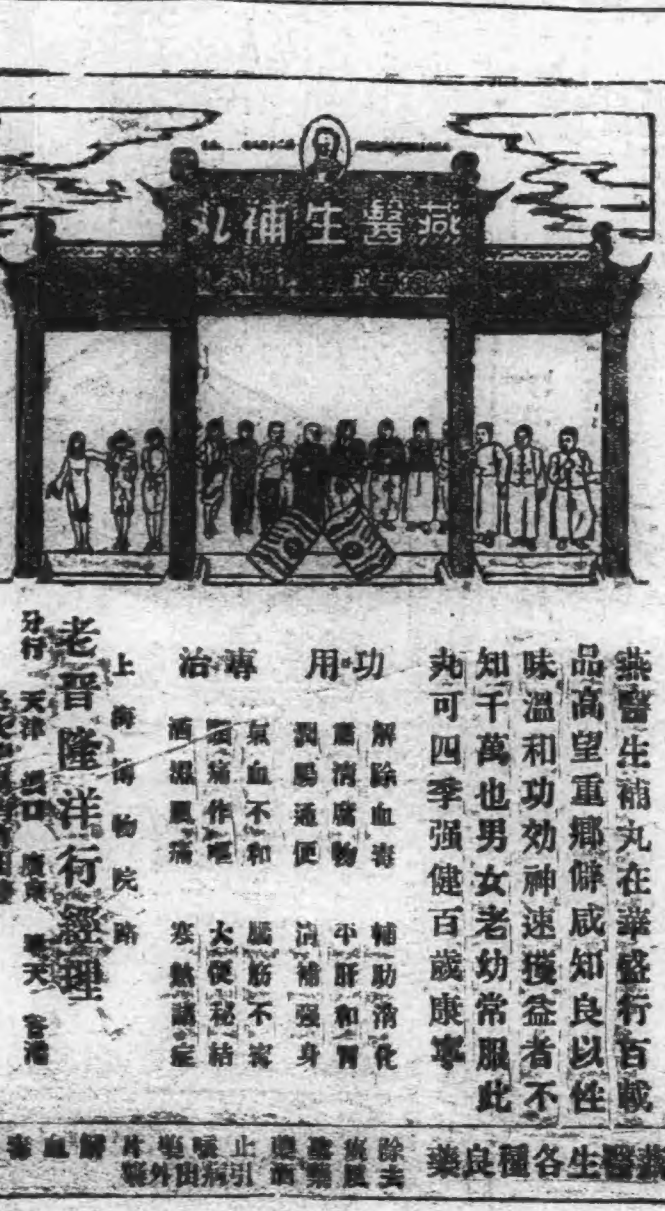 燕醫生補丸
燕醫生補丸在華盛行百載
品高望重鄉僻咸知良以性
味溫和功効神速獲益者不
知千萬也男女老幼常服此
丸可四季强健百歲康寧
功用
解除血毒 輔助消化
肅清腐物 平肝和胃
潤腸通便 清補强身
專治
氣血不和 腦筋不寧
頭痛作嘔 大便秘結
酒濕風痛 寒熱諸症
上海博物院路
老晋隆洋行經理
分行 天津 漢口 廣東 奉天 香港
燕醫生各種良藥
除去
止引
解血毒